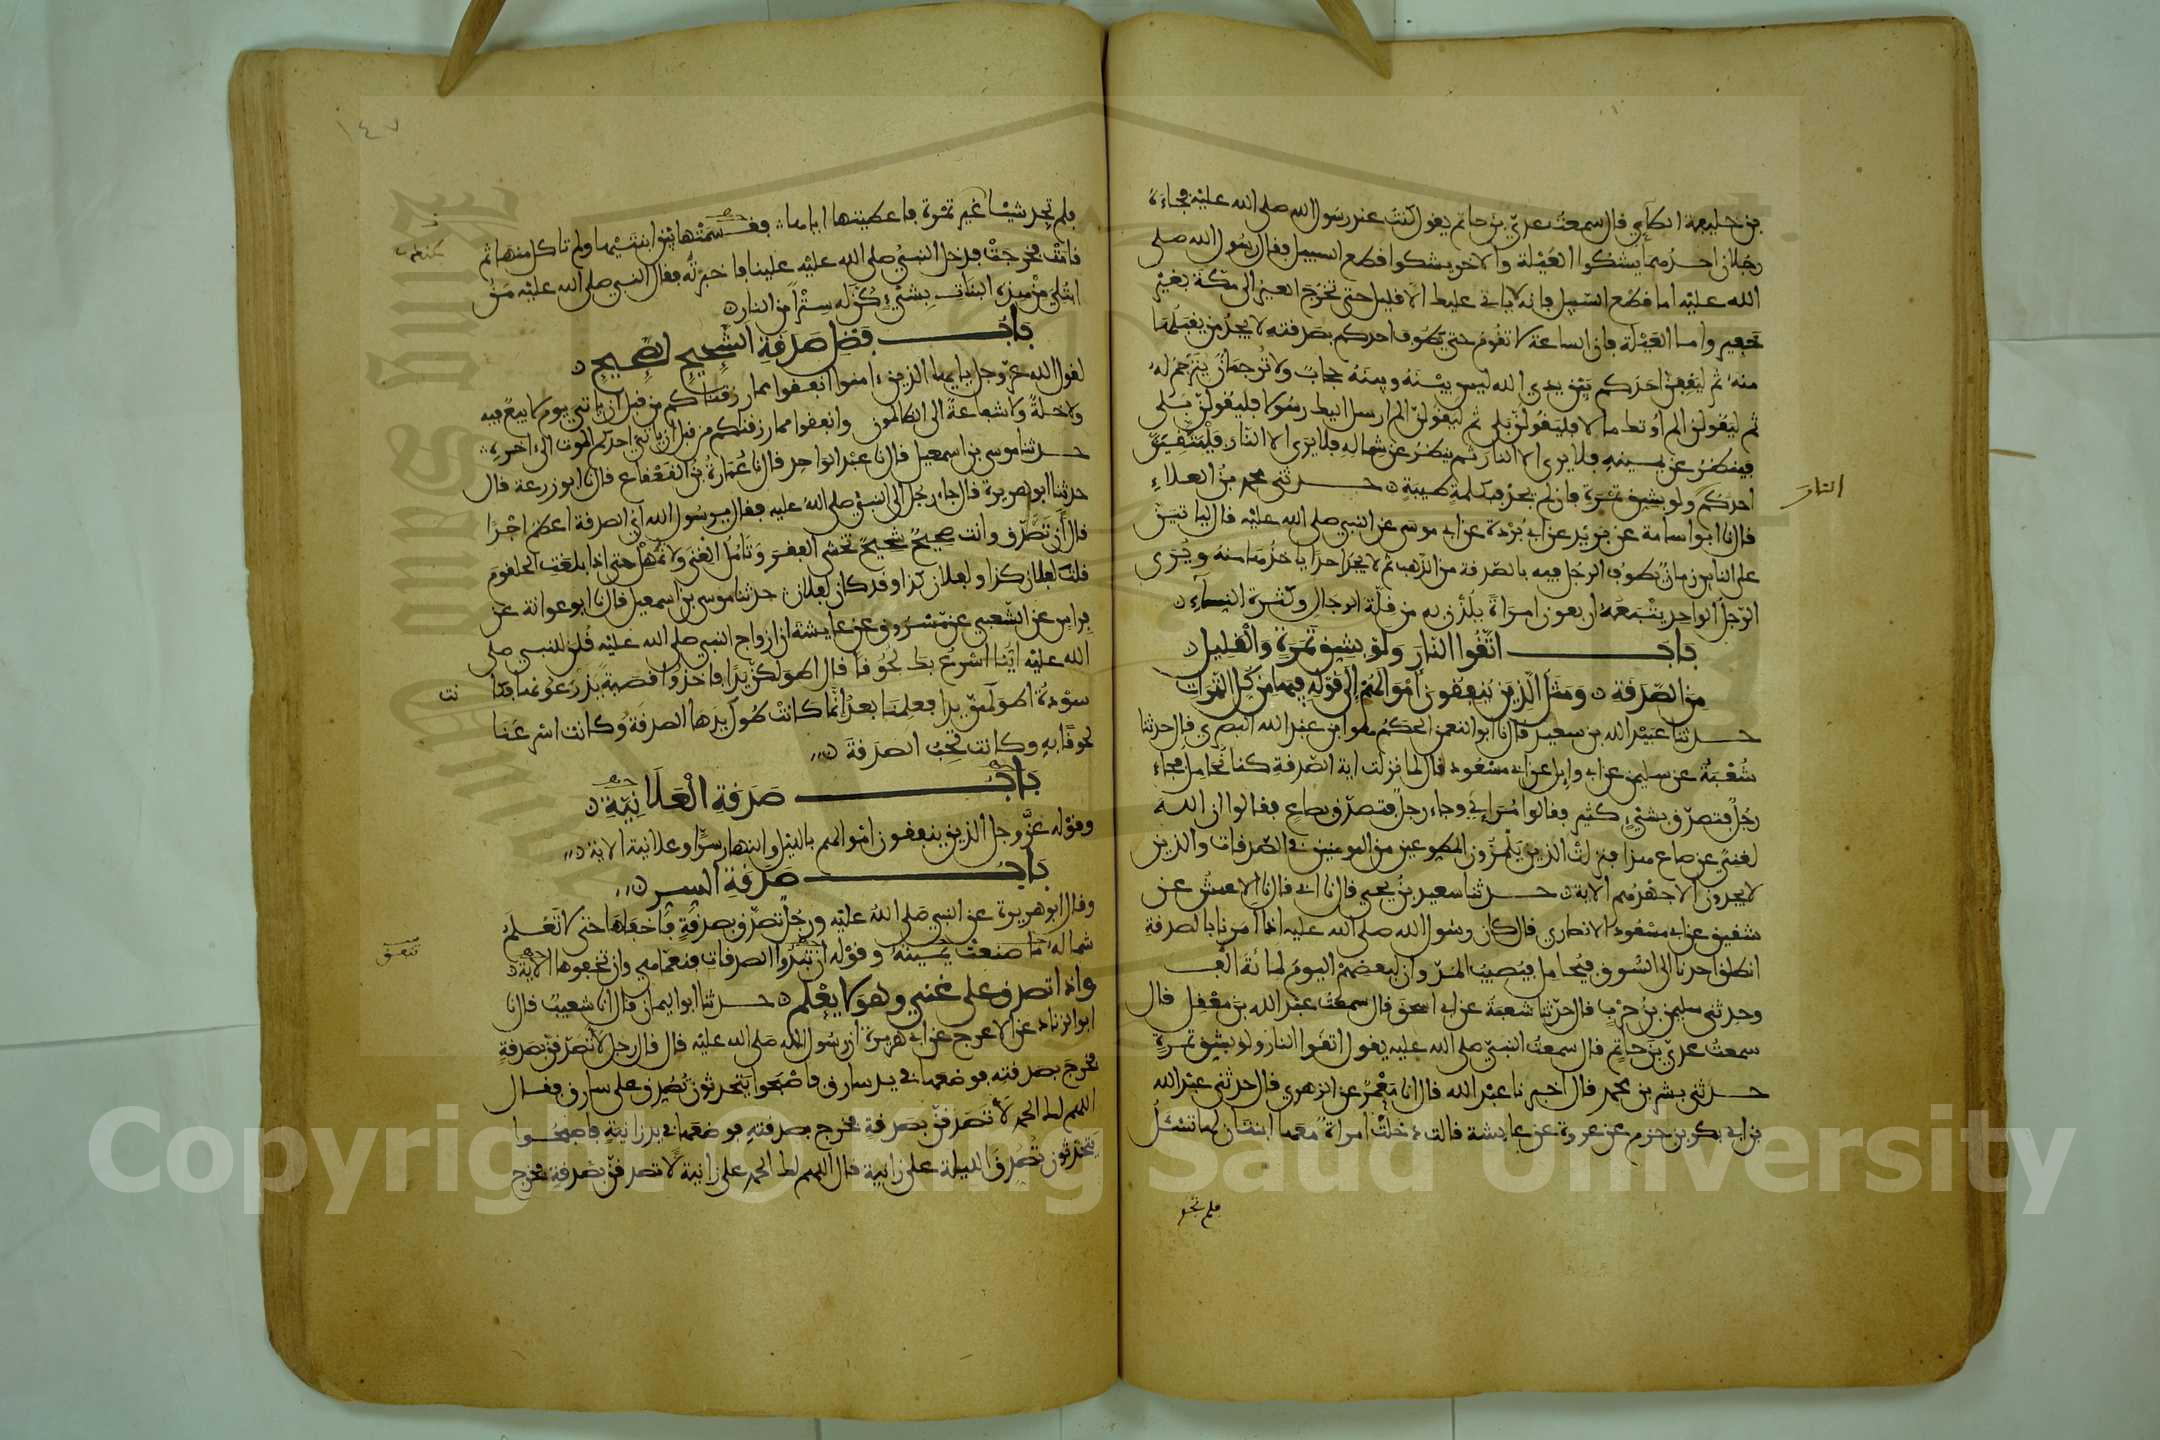 بن خليفة الطآءي قال سمعت عدي بن حاتم يقول كنت عند رسول الله صلى الله عليه فجاءه
رجلان احدهما يشكوا العيلة والاخر يشكوا قطع السبيل فقال رسول الله صلى
الله عليه اما قطع السبيل فانه لا ياتي عليك الا قليل حتى تخرج العير الى مكة بغير
خفير واما العيلة فان الساعة لا تقوم حتى يطوف احدكم بصدقته لا يجد من يقبلها
منه ثم ليقفن احدكم بين يدي الله ليس بينه وبينه حجاب ولا ترجمان يترجم له
ثم ليقولن الم اوتك مالا فليقولن بلى ثم ليقولن الم ارسل اليك رسولا فليقولن بلى
فينظر عن يمينه فلا يرى الا النار ثم ينظر عن شماله فلا يرى الا النار فليتقين
احدكم ولو بشق تمرة فان لم يجد فبكلمة طيبة حدثني محمد بن العلاء
قال نا ابو اسامة عن بريد عن ابي بردة عن ابي موسى عن النبي صلى الله عليه قال لياتين
على الناس زمان يطوف الرجل فيه بالصدقة من الذهب ثم لا يجد احدا ياخذها منه ويرى
الرجل الواحد يتبعه اربعون امراة يلذن به من قلة الرجال وكثرة النساء
باب اتقوا النار ولو بشق تمرة والقليل
من الصدقة ومثل الذين ينفقون اموالهم الى قوله فيها من كل الثمرات
حدثنا عبيد الله بن سعيد قال نا ابو النعمن الحكم هو ابن عبد الله البصري قال حدثنا
شعبة عن سليمن عن ابي وايل عن ابي مسعود قال لما نزلت اية الصدقة كنا نحامل فجاء
رجل فتصدق بشيء كثير فقالوا مراءي وجاء رجل فتصدق بصاع فقالوا ان الله
لغني عن صاع هذا فنزلت الذين يلمزون المطوعين من المومنين في الصدقات والذين
لا يجدون الا جهدهم الاية حدثنا سعيد بن يحيى قال نا ابي قال نا الاعمش عن
شقيق عن ابي مسعود الانصاري قال كان رسول الله صلى الله عليه اذا امرنا بالصدقة
انطلق احدنا الى السوق فيحامل فيصيب المد وان لبعضهم اليوم لمائة الف
وحدثني سليمن بن حرب قال حدثنا شعبة عن ابي اسحق قال سمعت عبد الله بن معقل قال
سمعت عدي بن حاتم قال سمعت النبي صلى الله عليه يقول اتقوا النار ولو بشق تمرة
حدثني بشر بن محمد قال اخبرنا عبد الله قال انا معمر عن الزهري قال حدثني عبد الله
بن ابي بكر بن حزم عن عروة عن عايشة قالت دخلت امراة معها ابنتان لها تسئل
فلم تجد
النار
١٤٧
فلم تجد شيئا غير تمرة فاعطيتها اياها فقسمتها بين ابنتيها ولم تاكل منها ثم
قامت فخرجت فدخل النبي صلى الله عليه علينا فاخبرته فقال النبي صلى الله عليه من
ابتلي من هذه البنات بشيء كن له سترا من النار
باب فضل صدقة الشحيح الصحيح
لقول الله عز وجل يايها الذين ءامنوا انفقوا مما رزقناكم من قبل ان ياتي يوم لا بيع فيه
ولا خلة ولا شفاعة الى الظالمون وانفقوا مما رزقناكم من قبل ان ياتي احدكم الموت الى اخره
حدثنا موسى بن اسمعيل قال نا عبد الواحد قال نا عمارة بن القعقاع قال نا ابو زرعة قال
حدثنا ابو هريرة قال جاء رجل الى النبي صلى الله عليه فقال يرسول الله اي الصدقة اعظم اجرا
قال أن تصدق وانت صحيح شحيح تخشى الفقر وتامل الغنى ولا تمهل حتى اذا بلغت الحلقوم
قلت لفلان كذا ولفلان كذا وقد كان لفلان حدثنا موسى بن اسمعيل قال نا ابو عوانة عن
فراس عن الشعبي عن مسروق عن عايشة ان ازواج النبي صلى الله عليه قلن للنبي صلى
الله عليه اينا اسرع بك لحوقا قال اطولكن يدا فاخذوا قصبة يذرعونها فكانت
سودة اطولهن يدا فعلمنا بعد انما كانت طول يدها الصدقة وكانت اسرعنا
لحوقا به وكانت تحب الصدقة
باب صدقة العلانية
وقوله عز وجل الذين ينفقون اموالهم بالليل والنهار سرا وعلانية الاية
باب صدقة السر
وقال ابو هريرة عن النبي صلى الله عليه ورجل تصدق بصدقة فاخفاها حتى لا تعلم
شماله ما صنعت يمينه وقوله ان تبدوا الصدقات فنعما هي وان تخفوها الاية
واذا تصدق على غني وهو لا يعلم حدثنا ابو اليمان قال انا شعيب قال نا
ابو الزناد عن الاعرج عن ابي هريرة ان رسول الله صلى الله عليه قال قال رجل لاتصدقن بصدقة
فخرج بصدقته فوضعها في يد سارق فاصبحوا يتحدثون تصدق على سارق فقال
اللهم لك الحمد لاتصدقن بصدقة فخرج بصدقته فوضعها في يد زانية فاصبحوا
يتحدثون تصدق الليلة على زانية قال اللهم لك الحمد على زانية لاتصدقن بصدقة فخرج
تنفق
Copyright © King Saud University